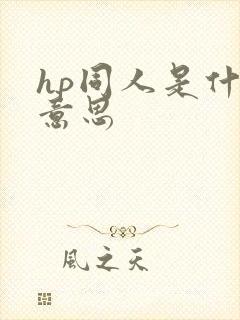 hp同人是什
意思
風之天